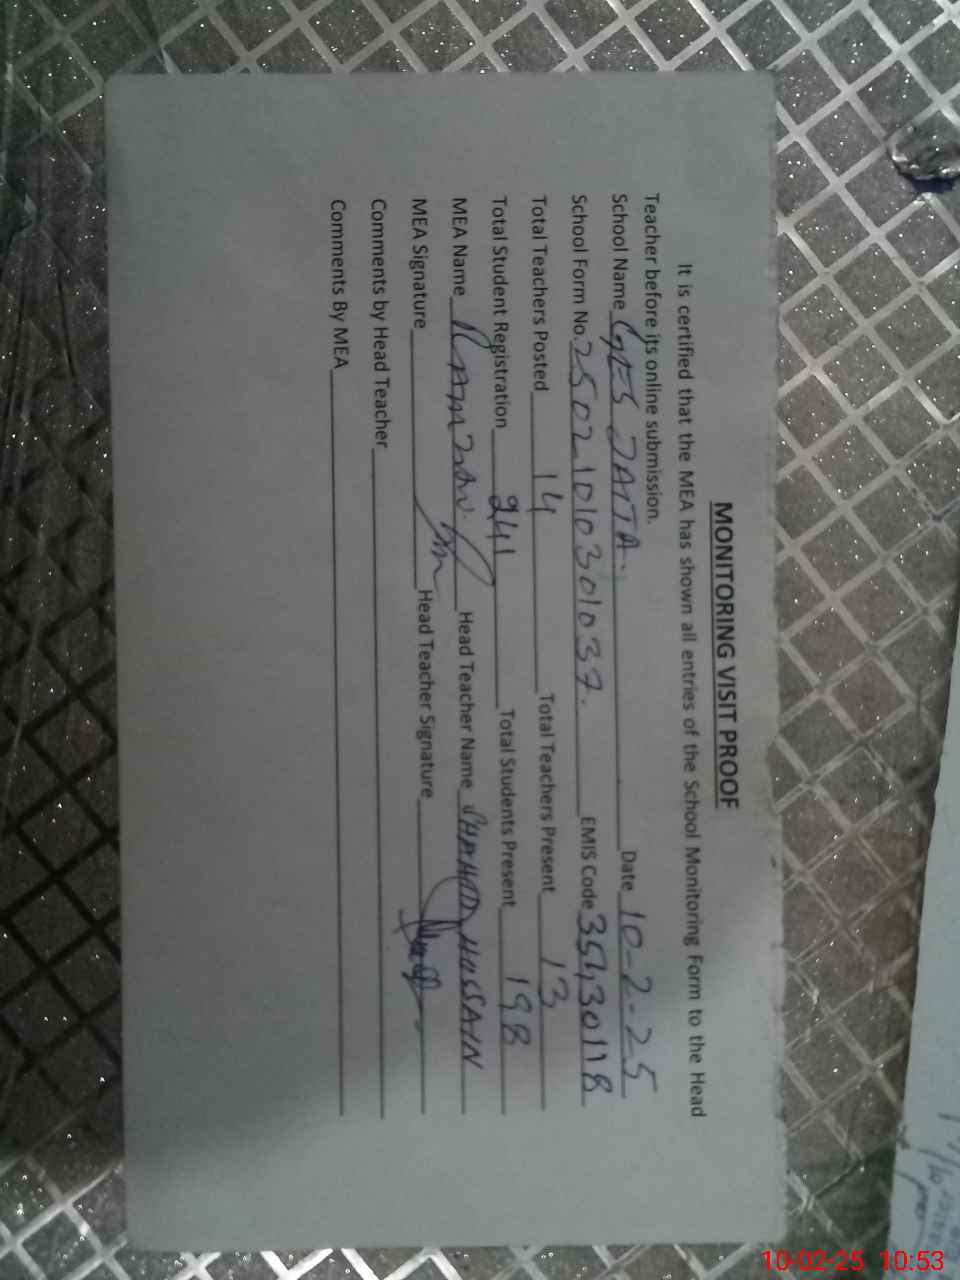 MONITORING VISIT PROOF
It is certified that the MEA has shown all entries of the School Monitoring Form to the Head
Teacher before its online submission.
School Name GES JATTA. Date 10-2-25
School Form No. 25021010301037. EMIS Code 35430118
Total Teachers Posted 14 Total Teachers Present 13
Total Student Registration 241 Total Students Present 198
MEA Name Head Teacher Name HUSSAIN
MEA Signature Head Teacher Signature
Comments by Head Teacher
Comments By MEA
10-02-25 10:53